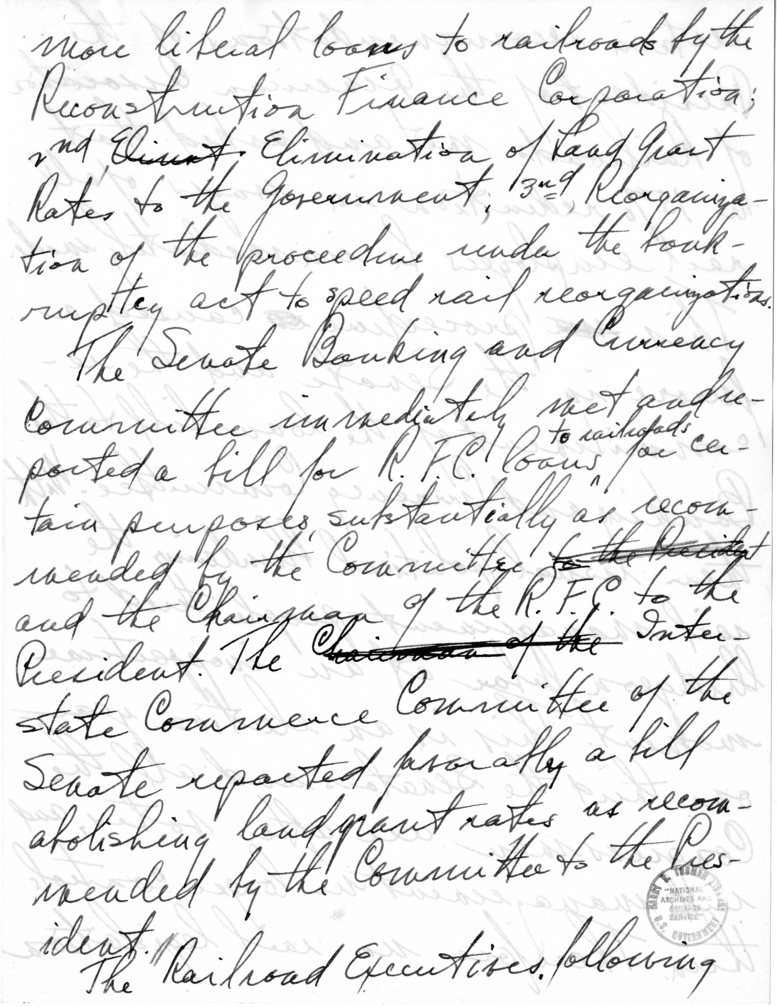 more liberal loans to railroads by the
Reconstruction Finance Corporation;
2nd, Elimint. Elimination of Land Grant
Rates to the Government; 3rd, Reorganiza-
tion of the proceedure under the bank-
ruptcy act to speed rail reorganizations.
The Senate Banking and Currency
Committee immediately met and re-
to railroads
ported a bill for R.F.C. loans ^ for cer-
tain purposes, substantially as recom-
mended by the Committee to the President
and the Chairman of the R.F.C. to the
President. The Chairman of the Inter-
state Commerce Committee of the
Senate reported favorally a bill
abolishing land grant rates as recom-
mended by the Committee to the Pres-
ident."
The Railroad Executives, following
HARRY S. TRUMAN LIBRARY
"NATIONAL
ARCHIVES AND
RECORDS
SERVICE"
U.S. GOVERNMENT